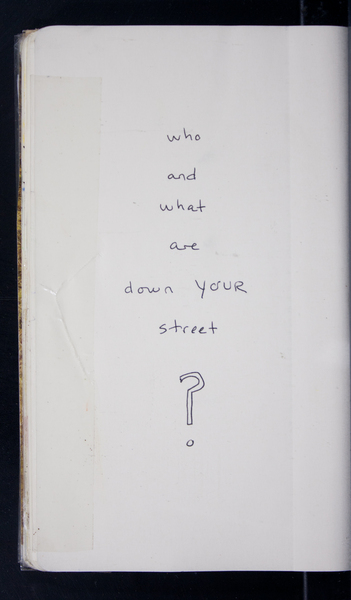 who
and
what
are
down YOUR
street
?